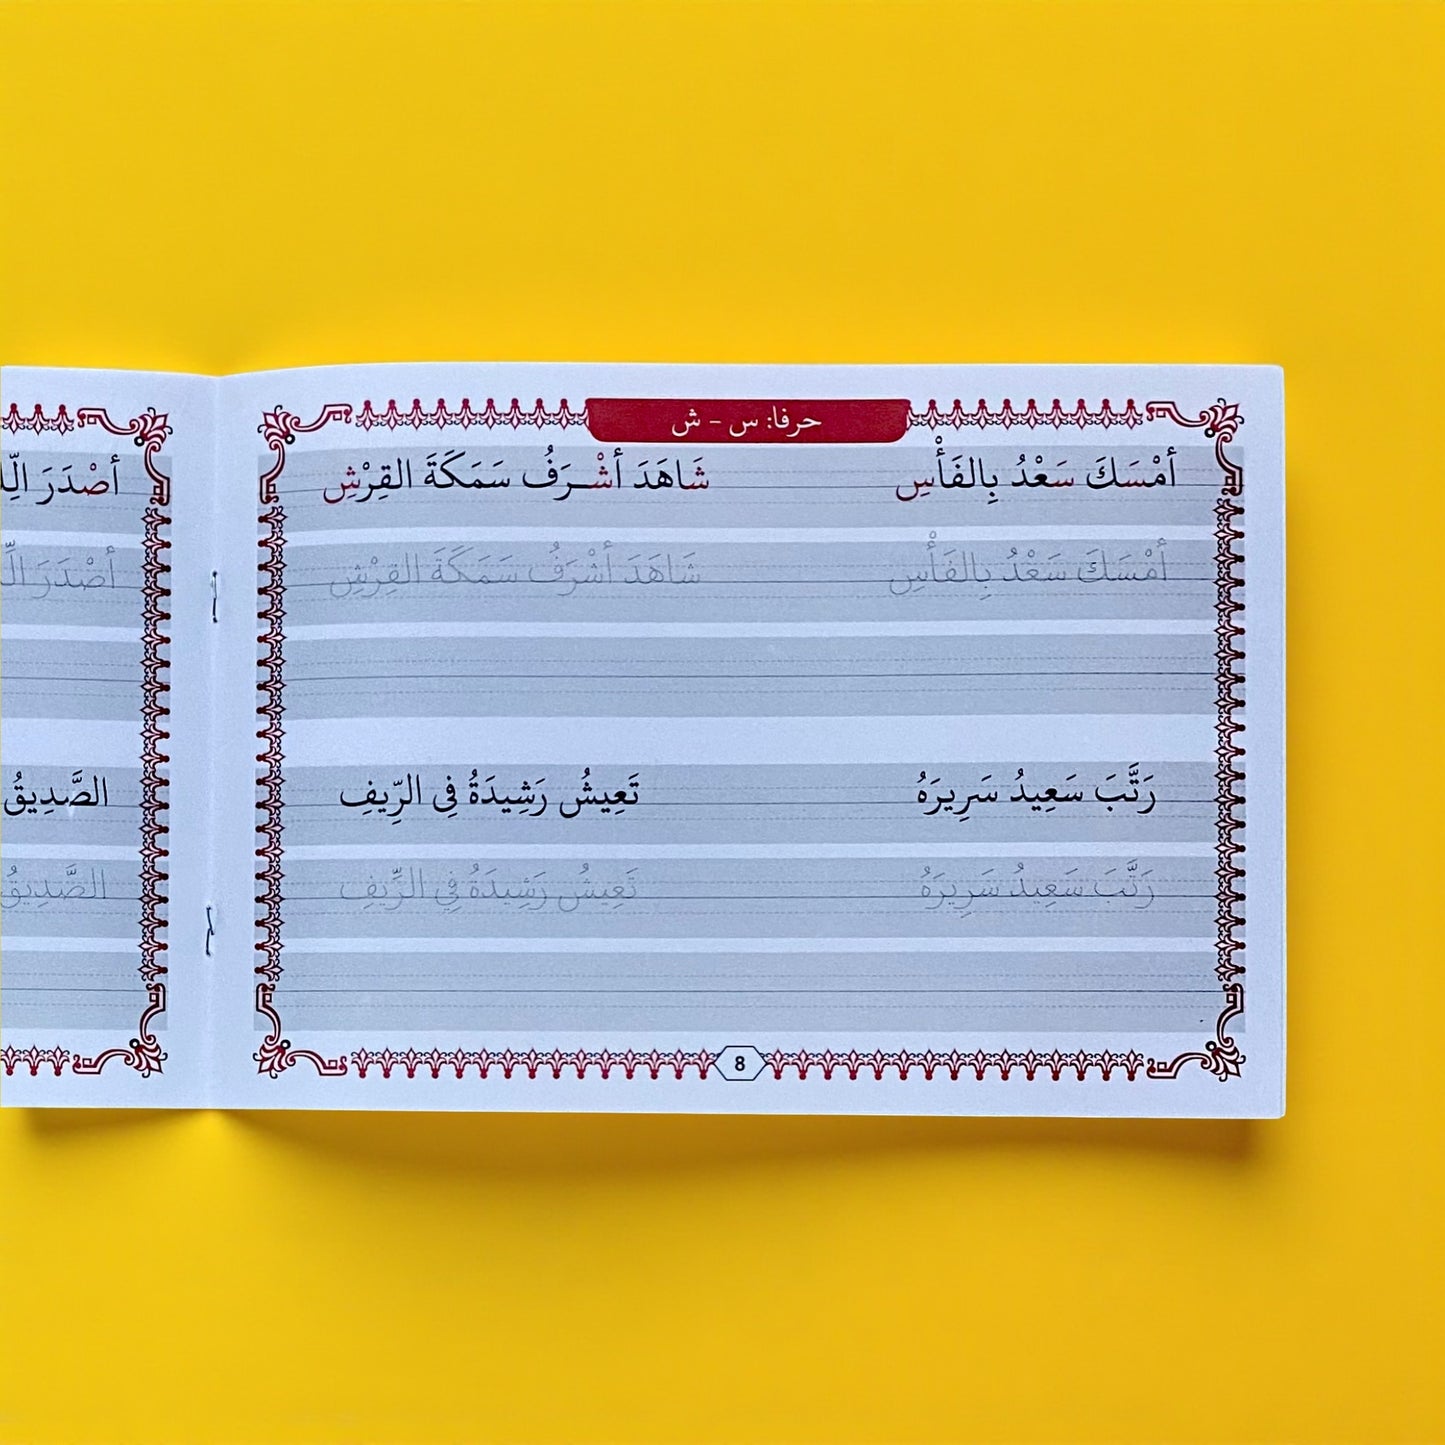 حرفا: س – ش
أمْسَكَ سَعْدُ بِالفَأْسِ شَاهَدَ أشْـرَفُ سَمَكَةَ القِرْشِ
أمْسَكَ سَعْدُ بِالفَأْسِ شَاهَدَ أشْرَفُ سَمَكَةَ القِرْشِ
رَتَّبَ سَعِيدُ سَرِيرَهُ تَعِيشُ رَشِيدَةُ فِي الرِّيفِ
رَتَّبَ سَعِيدُ سَرِيرَهُ تَعِيشُ رَشِيدَةُ فِي الرِّيفِ
8
أصْدَرَ
أصْدَرَ
الصَّدِيقُ
الصَّدِيقُ